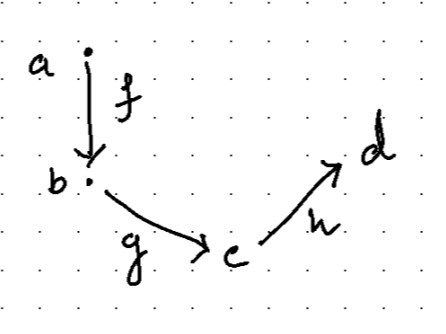 a
f
b
g
c
h
d